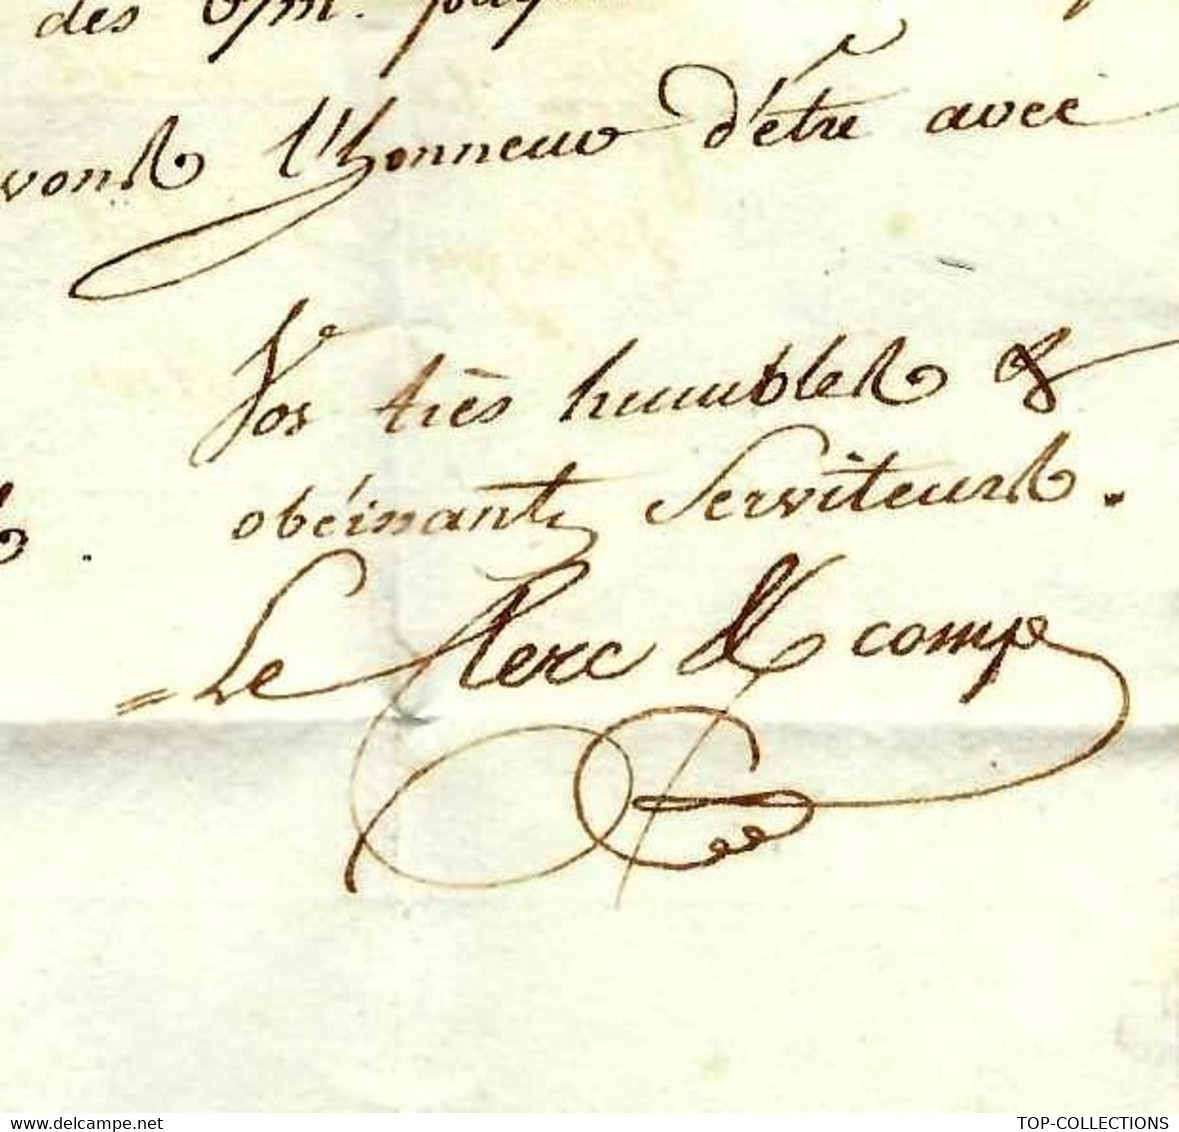 des
avons l'honneur d'être avec
Vos très humbles &
obéissants Serviteurs.
= Le Clerc & comp
delcampe.net
TOP-COLLECTIONS